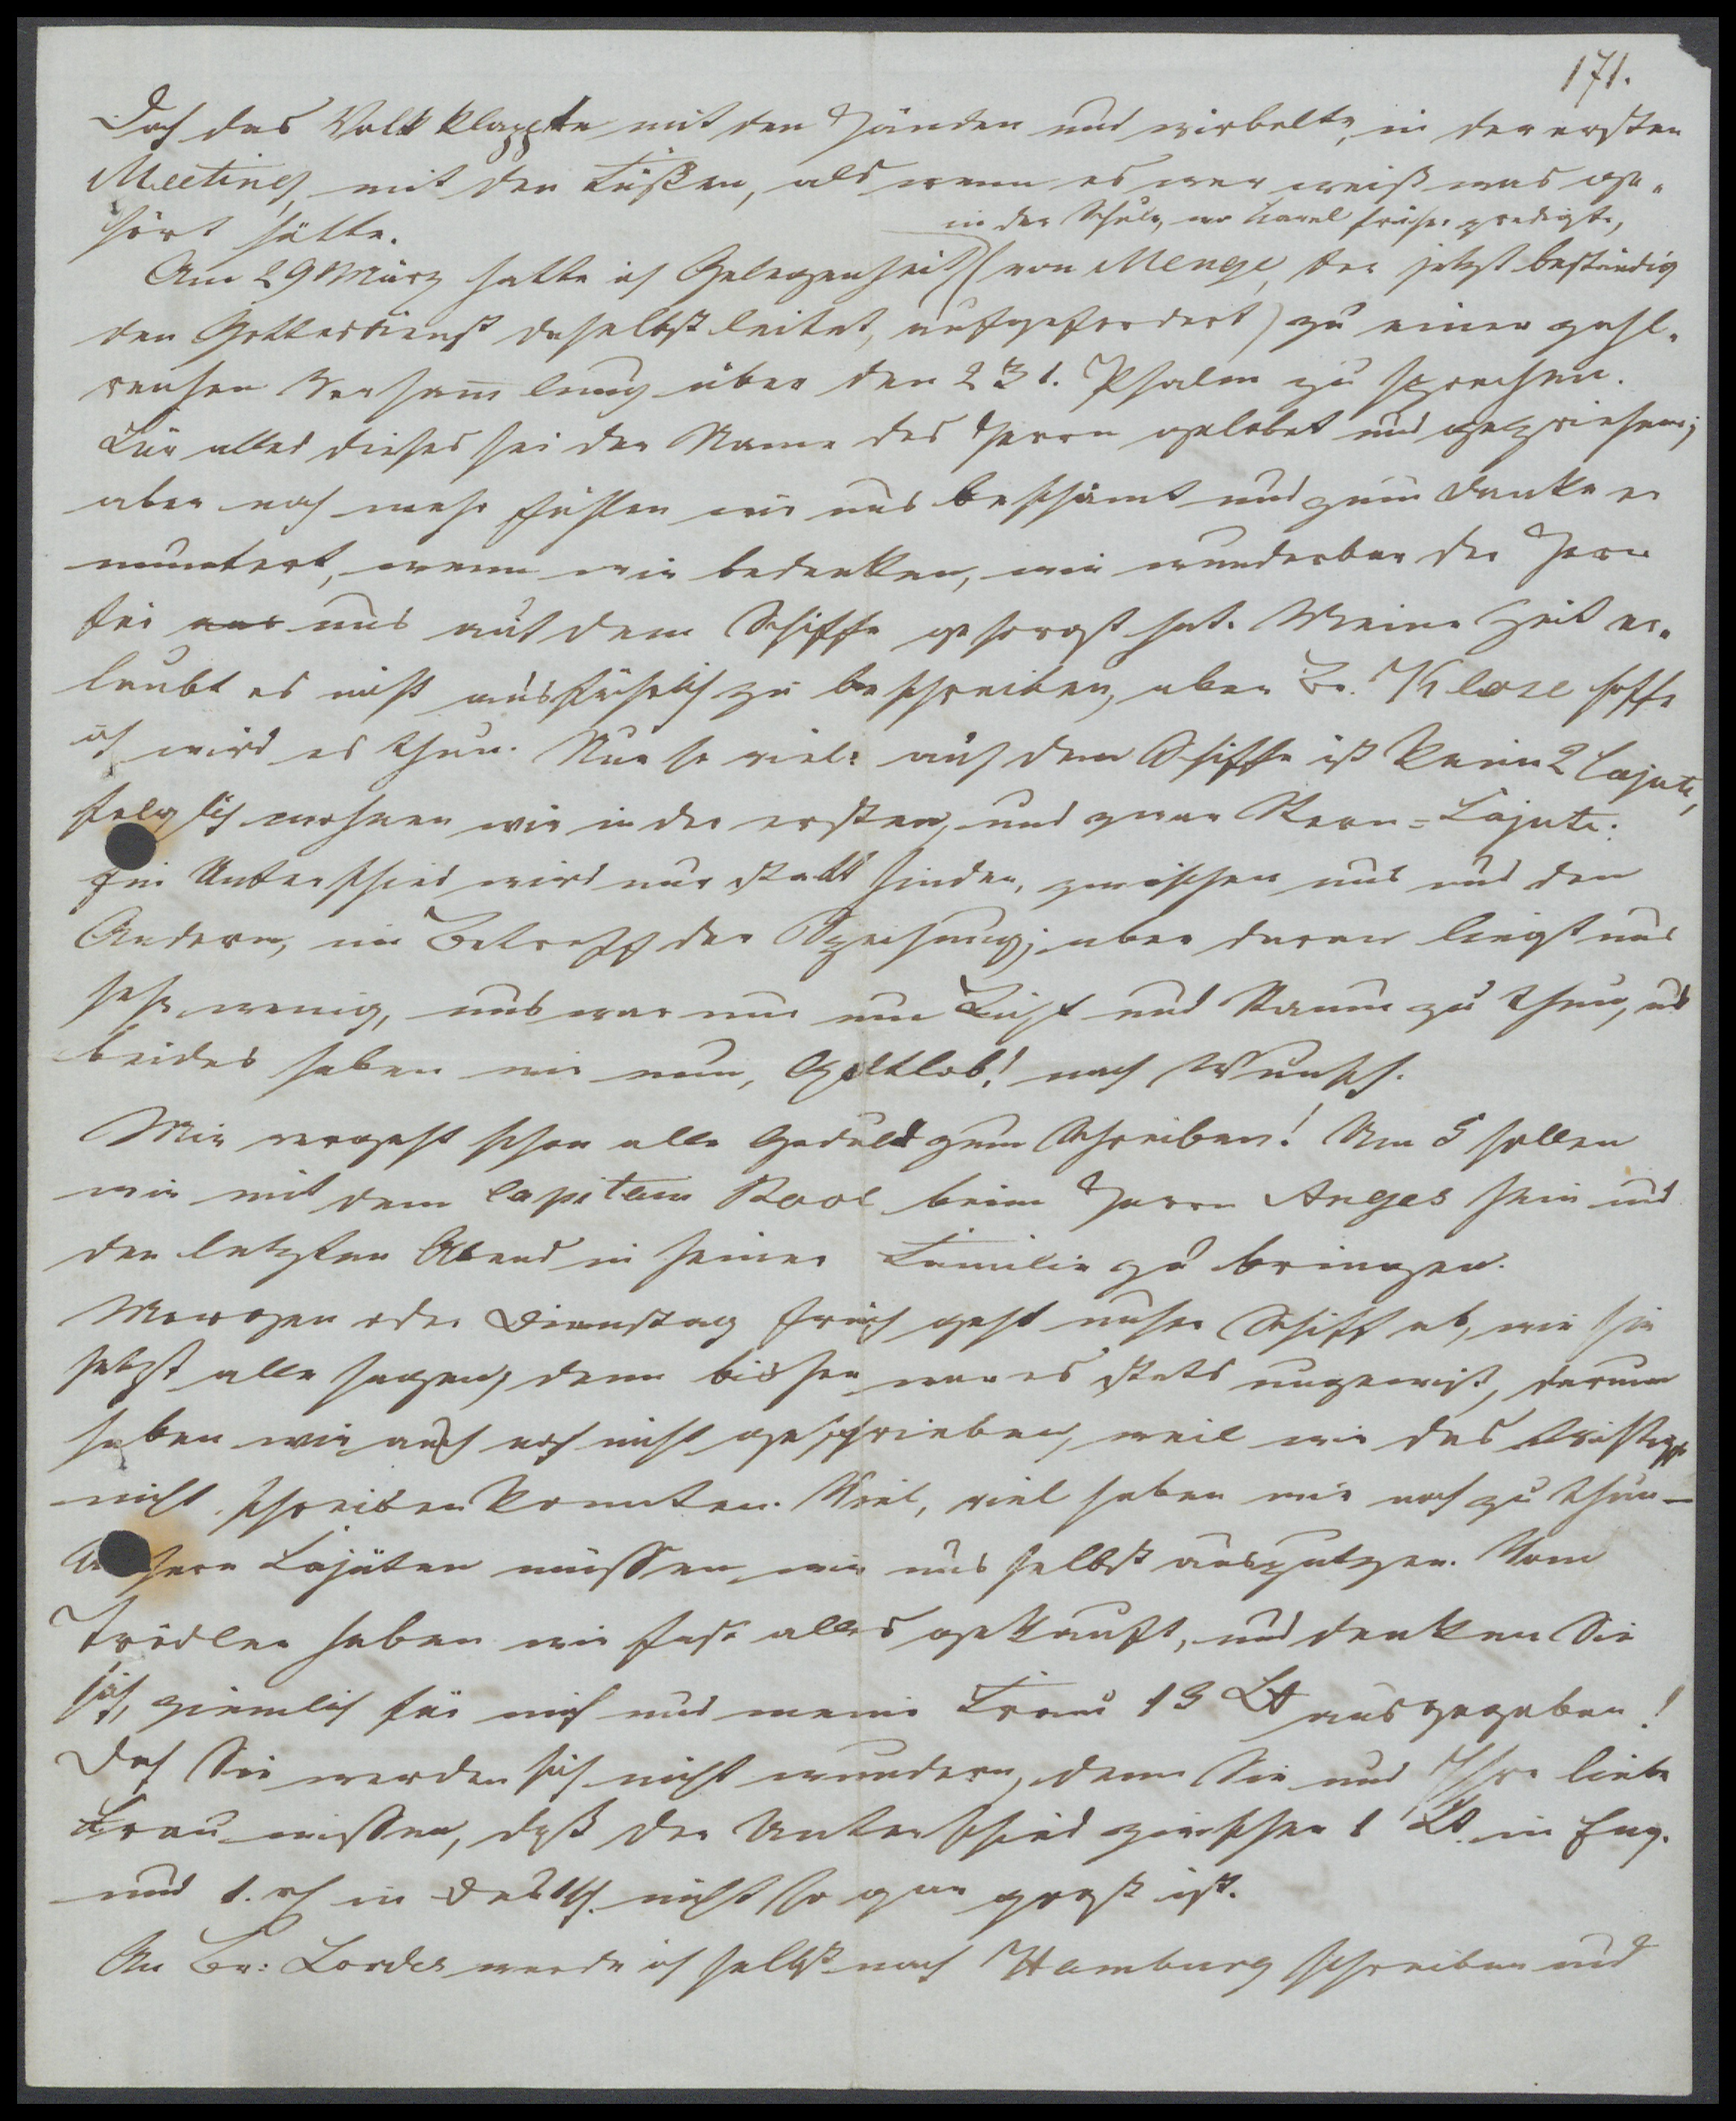 171.
Doch das Volk klappte mit den Händen und wirbelte, in der ersten
Meeting, mit den Füßen, als wenn es wer weiß was ge-
hört hätte.
in der Schule, wo Karel früher predigte,
Am 29 März hatte ich Gelegenheit (von Menge, der jetzt beständig
den Gottesdienst daselbst leitet, aufgefordert) zu einer zahl-
reichen Versammlung über den 231. Psalm zu sprechen.
Für alles dieses sei der Name des Herrn gelobet und gepriesen;
aber noch mehr fühlen wir uns beschämt und zum Danke er
muntert, wenn wir bedenken, wie wunderbar der Herr
für aus uns auf dem Schiffe gesorgt hat. Meine Zeit er-
laubt es nicht ausführlich zu beschreiben, aber Br. Klose hoffe
ich wird es thun. Nur so viel: auf dem Schiffe ist kein 2 Cajute,
folglich wohnen wir in der ersten, und zwar Stern-Cajute.
Ein Unterschied wird nur statt finden, zwischen uns und den
Andern, im Betreff der Speisung; aber daran liegt uns
sehr wenig, uns war nur um Luft und Raum zu thun, und
beides haben wir nun, Gottlob! nach Wunsch.
Mir vergeht schon alle Geduld zum Schreiben! Um 5 sollen
wir mit dem Capitain beim Herrn Angas sein und
den letzten Abend in seiner Familie zu bringen.
Morgen oder Dienstag früh geht unser Schiff ab, wie sie
jetzt alle sagen, denn bisher war es stets ungewiß, darum
haben wir auch noch nicht geschrieben, weil wir das
nicht schreiben konnten. Viel, viel haben wir noch zu thun —
Unsere Cajüten müssen wir uns selbst ausputzen. Vom
Trödler haben wir fast alles gekauft, und denken Sie
sich, ziemlich für mich und meine Frau 13 Lt ausgegeben!
Doch Sie werden sich nicht wundern, denn Sie und Ihre liebe
Frau wissen, daß der Unterschied zwischen 1 Lt. in Eng.
und 1. rh in Deutsch. nicht so gar groß ist.
An Br: Lordes werde ich selbst nach Hamburg schreiben und